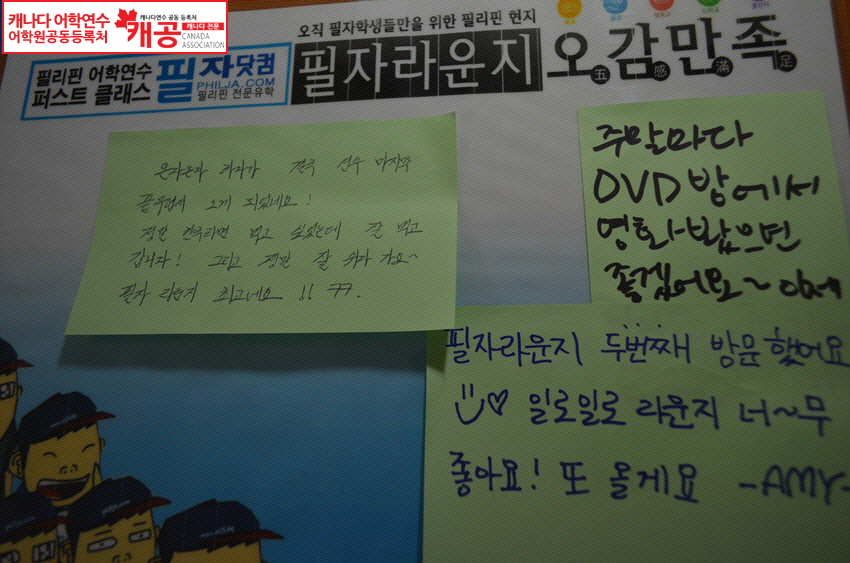 캐나다 어학연수
어학원공동등록처
캐나다연수 공동 등록처
캐공
캐나다 전문
CANADA
ASSOCIATION
오직 필자학생들만을 위한 필리핀 현지
필리핀 어학연수
퍼스트 클래스
필자닷컴
PHILJA.COM
필리핀 전문유학
필자라운지
오감만족
五 感 滿 足
결국 연수 마지막
오게 되었네요!
정말 한국라면 먹고 싶었는데 잘 먹고
갑니다! 그리고 정말 잘 쉬다 가요~
필자 라운지 최고네요!! ㅋㅋ.
주말마다
DVD방에서
영화봤으면
좋겠어요~
필자라운지 두번째 방문했어요
일로일로 라운지 너~무
좋아요! 또 올게요 -AMY-